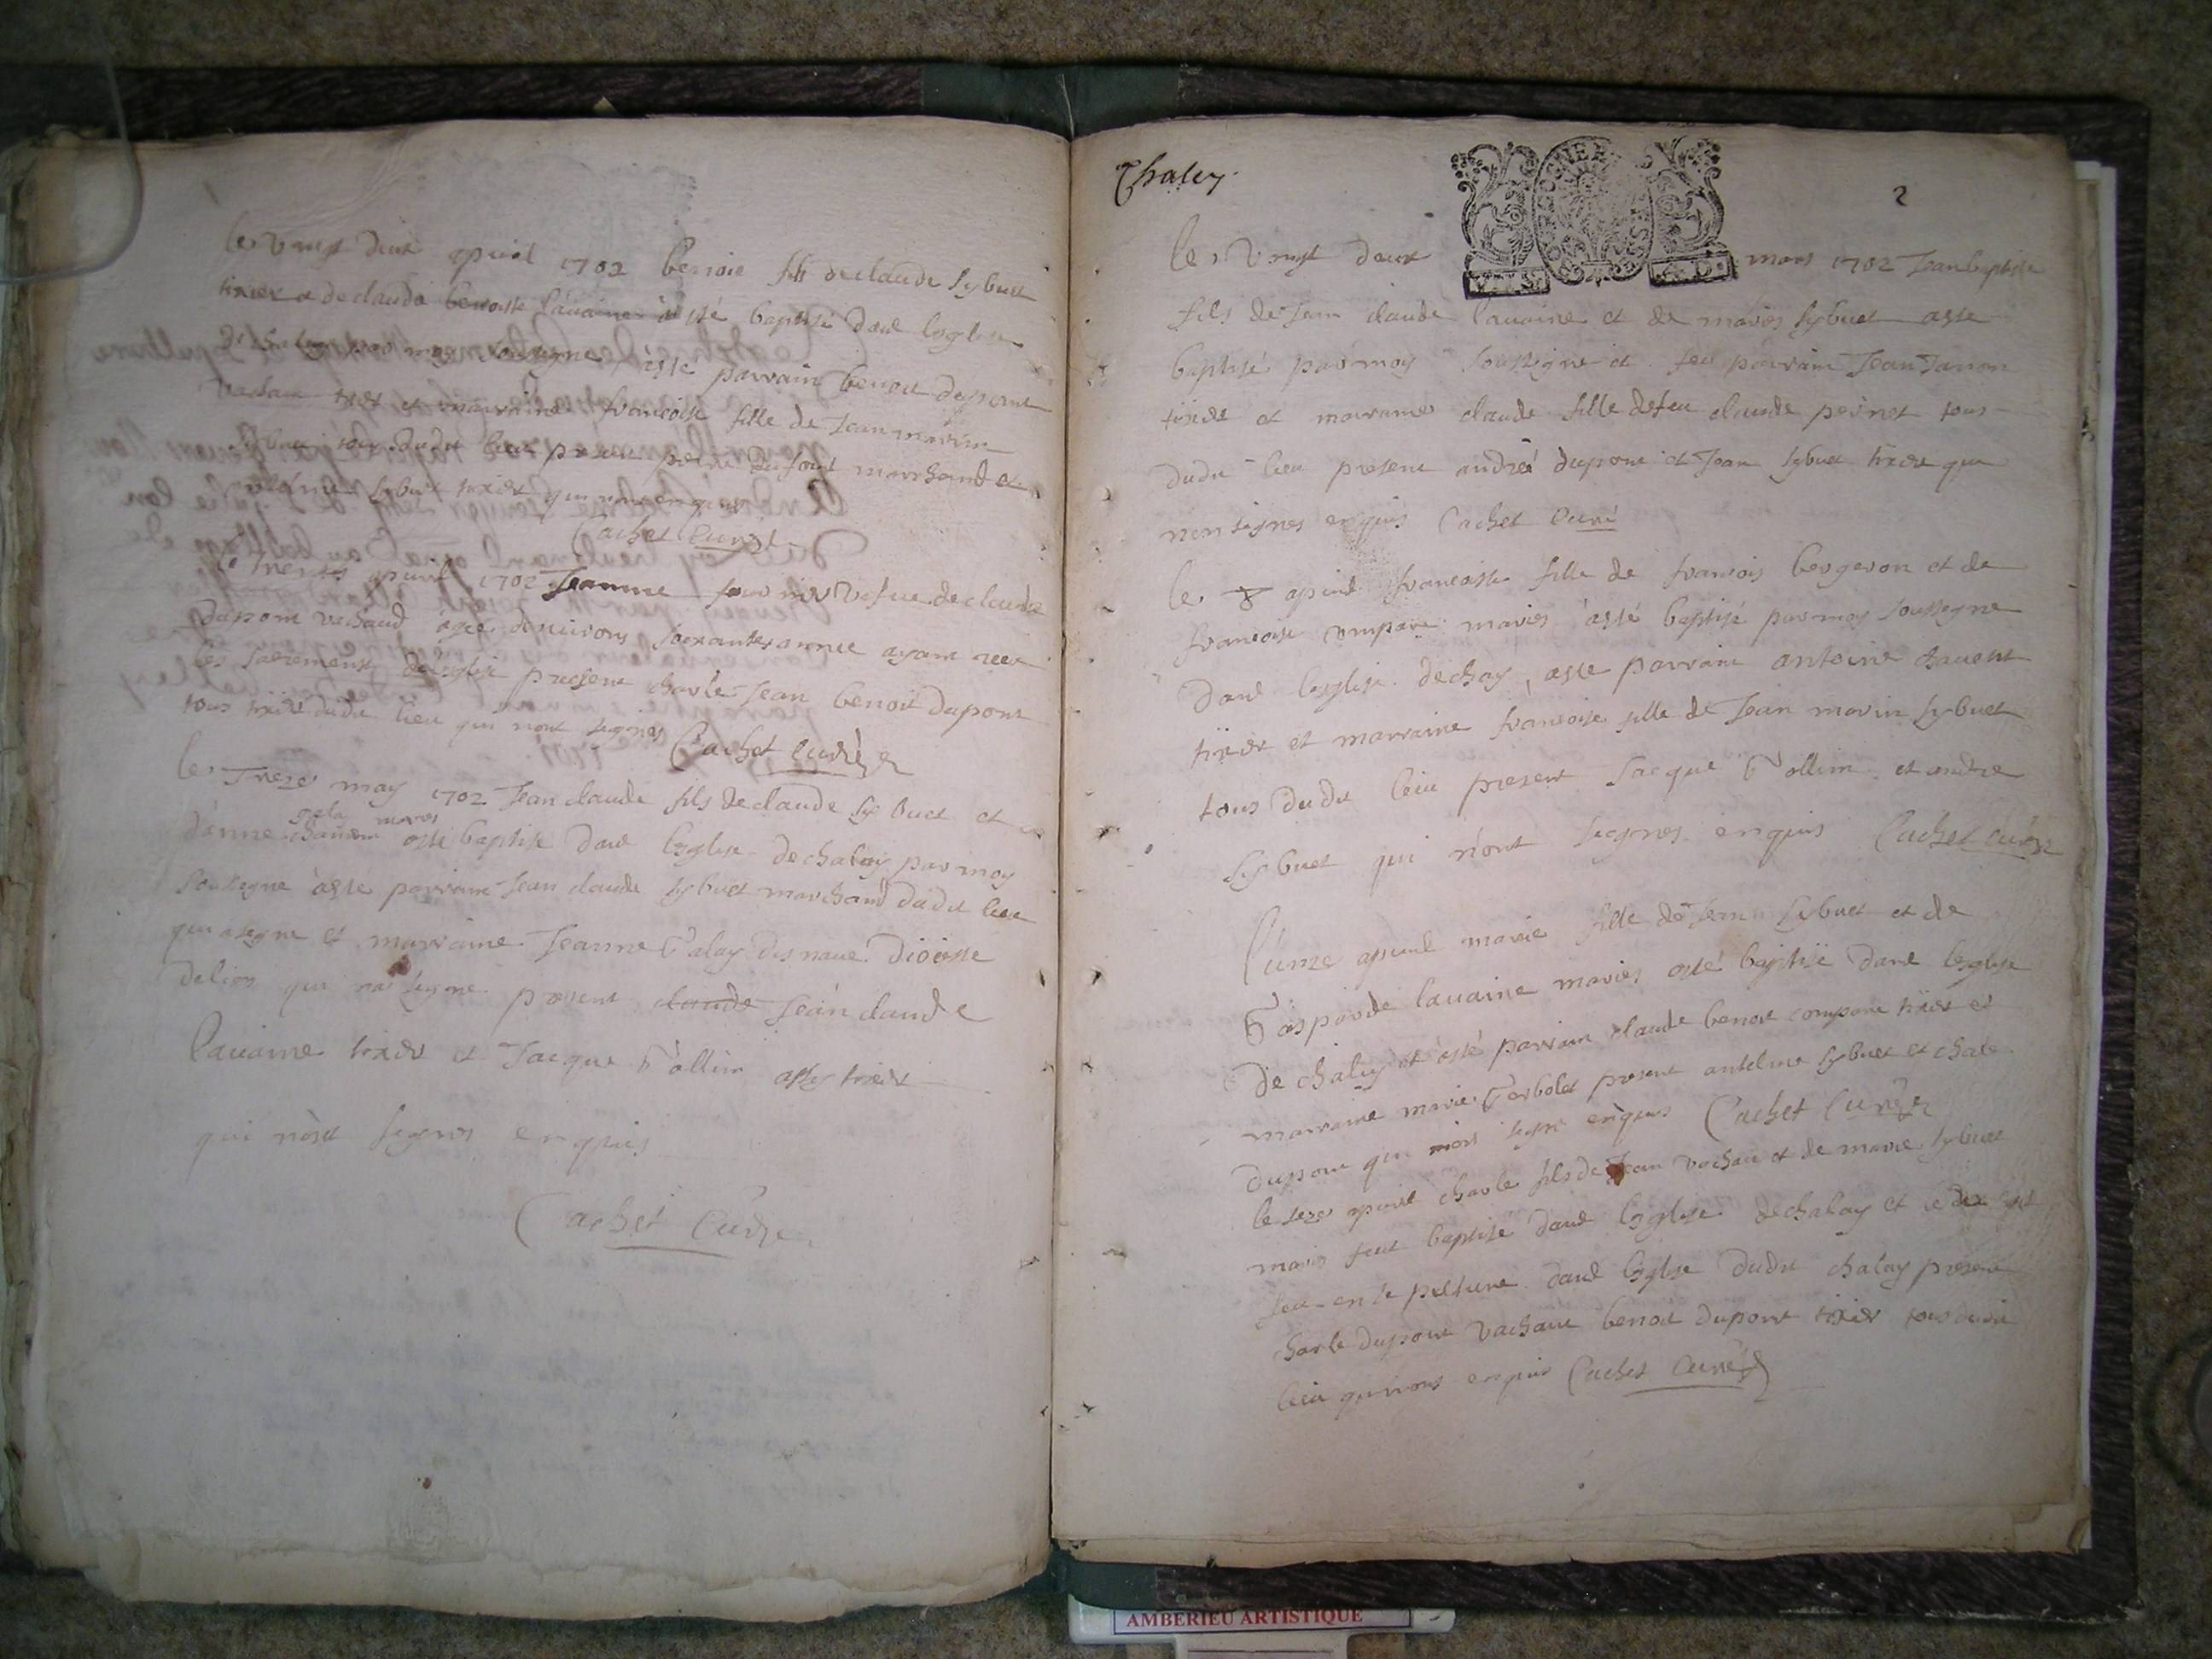 le vingt deux apvril 1702 benoit fils de claude sybuet
tixier et de claude benoite lauaine asté baptisé dans leglise
de chaley par moy soussigne, aste parrain benoit dupont
vachau tixier et marraine francoise fille de Jean marin
sybuet tous dudit lieu present marchand et
sybuet tixier qui enquis
Cachet Curé
le apvril 1702 Jeanne vefue de claude
dupont vachaud agee denuirons soixantes annee ayant receu
les sacrements de leglise present charle Jean benoit dupont
tous tixier dudit lieu qui nont signes Cachet Curé
le Treze may 1702 Jean claude fils de claude sybuet et
danne maries
asté baptise dans leglise de chaley par moy
soussigne asté parrain Jean claude sybuet marchand dudit lieu
qui a signe et marraine Jeanne dioicese
de lion qui na signe present claude Jean claude
lauaine tixier et Jacque Gollim assy tixier
qui nont signes enquis
Cachet Curé
Chaley
2
le vingt deux mars 1702 Jean baptiste
fils de Jean claude lauaine et de maries sybuet asté
baptisé par moy soussigne et feu parrain Jean Janon
tixier et marraine claude fille de feu claude perinet tous
dudit lieu present andrea dupont et Jean sybuet tixier qui
nont signes enquis Cachet Curé
le 8 apvril francoise fille de francois bergeron et de
francoise compare maries asté baptisé par moy soussigne
dans leglise de chaley, aste parrain antoine chauent
tixier et marraine francoise fille de Jean marin sybuet
tous dudit lieu present Jacque Gollim et andre
sybuet qui nont signes enquis Cachet Curé
apvril marie fille de Jean sybuet et de
Gasparde lauaine maries asté baptisé dans leglise
de chaley et asté parrain claude benoit compare tixier et
marraine marie Gerbolet present antelme sybuet et charle
dupont qui nont signe enquis Cachet Curé
le seze apvril charle fils de Jean vachau et de marie sybuet
maries feut baptisé dans leglise de chaley et
feu ense pulture dans leglise dudit chaley present
charle dupont vachau benoit dupont tixier tous dudit
lieu qui nont enquis Cachet Curé
AMBERIEU ARTISTIQUE